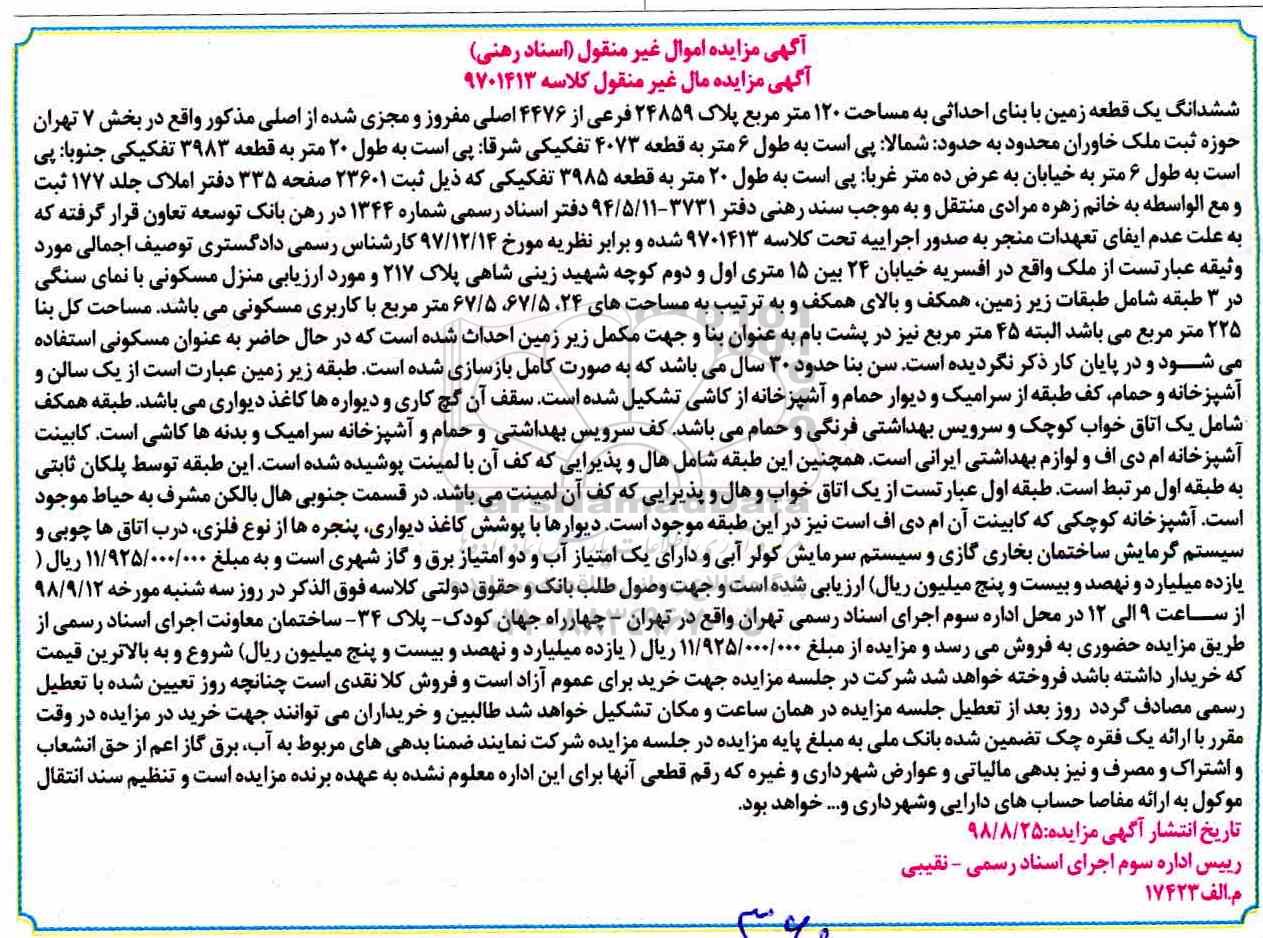 آگهی مزایده اموال غیر منقول (اسناد رهنی)
آگهی مزایده مال غیر منقول کلاسه ۹۷۰۱۴۱۳
ششدانگ یک قطعه زمین با بنای احداثی به مساحت ۱۲۰ متر مربع پلاک ۲۴۸۵۹ فرعی از ۴۴۷۶ اصلی مفروز و مجزی شده از اصلی مذکور واقع در بخش ۷ تهران
حوزه ثبت ملک خاوران محدود به حدود: شمالا: پی است به طول ۶ متر به قطعه ۴۰۷۳ تفکیکی شرقا: پی است به طول ۲۰ متر به قطعه ۳۹۸۳ تفکیکی جنوبا: پی
است به طول ۶ متر به خیابان به عرض ده متر غربا: پی است به طول ۲۰ متر به قطعه ۳۹۸۵ تفکیکی که ذیل ثبت ۲۳۶۰۱ صفحه ۳۳۵ دفتر املاک جلد ۱۷۷ ثبت
و مع الواسطه به خانم زهره مرادی منتقل و به موجب سند رهنی دفتر ۳۷۳۱-۹۴/۵/۱۱ دفتر اسناد رسمی شماره ۱۳۴۴ در رهن بانک توسعه تعاون قرار گرفته که
به علت عدم ایفای تعهدات منجر به صدور اجراییه تحت کلاسه ۹۷۰۱۴۱۳ شده و برابر نظریه مورخ ۹۷/۱۲/۱۴ کارشناس رسمی دادگستری توصیف اجمالی مورد
وثیقه عبارتست از ملک واقع در افسریه خیابان ۲۴ بین ۱۵ متری اول و دوم کوچه شهید زینی شاهی پلاک ۲۱۷ و مورد ارزیابی منزل مسکونی با نمای سنگی
در ۳ طبقه شامل طبقات زیر زمین، همکف و بالای همکف و به ترتیب به مساحت های ۲۴، ۶۷/۵، ۶۷/۵ متر مربع با کاربری مسکونی می باشد. مساحت کل بنا
۲۲۵ متر مربع می باشد البته ۴۵ متر مربع نیز در پشت بام به عنوان بنا و جهت مکمل زیر زمین احداث شده است که در حال حاضر به عنوان مسکونی استفاده
می شود و در پایان کار ذکر نگردیده است. سن بنا حدود ۳۰ سال می باشد که به صورت کامل بازسازی شده است. طبقه زیر زمین عبارت است از یک سالن و
آشپزخانه و حمام، کف طبقه از سرامیک و دیوار حمام و آشپزخانه از کاشی تشکیل شده است. سقف آن گچ کاری و دیواره ها کاغذ دیواری می باشد. طبقه همکف
شامل یک اتاق خواب کوچک و سرویس بهداشتی فرنگی و حمام می باشد. کف سرویس بهداشتی و حمام و آشپزخانه سرامیک و بدنه ها کاشی است. کابینت
آشپزخانه ام دی اف و لوازم بهداشتی ایرانی است. همچنین این طبقه شامل هال و پذیرایی که کف آن با لمینت پوشیده شده است. این طبقه توسط پلکان ثابتی
به طبقه اول مرتبط است. طبقه اول عبارتست از یک اتاق خواب و هال و پذیرایی که کف آن لمینت می باشد. در قسمت جنوبی هال بالکن مشرف به حیاط موجود
است. آشپزخانه کوچکی که کابینت آن ام دی اف است نیز در این طبقه موجود است. دیوارها با پوشش کاغذ دیواری، پنجره ها از نوع فلزی، درب اتاق ها چوبی و
سیستم گرمایش ساختمان بخاری گازی و سیستم سرمایش کولر آبی و دارای یک امتیاز آب و دو امتیاز برق و گاز شهری است و به مبلغ ۱۱/۹۲۵/۰۰۰/۰۰۰ ریال (
یازده میلیارد و نهصد و بیست و پنج میلیون ریال) ارزیابی شده است و جهت وصول طلب بانک و حقوق دولتی کلاسه فوق الذکر در روز سه شنبه مورخه ۹۸/۹/۱۲
از ساعت ۹ الی ۱۲ در محل اداره سوم اجرای اسناد رسمی تهران واقع در تهران - چهارراه جهان کودک- پلاک ۳۴- ساختمان معاونت اجرای اسناد رسمی از
طریق مزایده حضوری به فروش می رسد و مزایده از مبلغ ۱۱/۹۲۵/۰۰۰/۰۰۰ ریال ( یازده میلیارد و نهصد و بیست و پنج میلیون ریال) شروع و به بالاترین قیمت
که خریدار داشته باشد فروخته خواهد شد شرکت در جلسه مزایده جهت خرید برای عموم آزاد است و فروش کلا نقدی است چنانچه روز تعیین شده با تعطیل
رسمی مصادف گردد روز بعد از تعطیل جلسه مزایده در همان ساعت و مکان تشکیل خواهد شد طالبین و خریداران می توانند جهت خرید در مزایده در وقت
مقرر با ارائه یک فقره چک تضمین شده بانک ملی به مبلغ پایه مزایده در جلسه مزایده شرکت نمایند ضمنا بدهی های مربوط به آب، برق گاز اعم از حق انشعاب
و اشتراک و مصرف و نیز بدهی مالیاتی و عوارض شهرداری و غیره که رقم قطعی آنها برای این اداره معلوم نشده به عهده برنده مزایده است و تنظیم سند انتقال
موکول به ارائه مفاصا حساب های دارایی وشهرداری و... خواهد بود.
تاریخ انتشار آگهی مزایده:۹۸/۸/۲۵
رییس اداره سوم اجرای اسناد رسمی - نقیبی
م.الف۱۷۴۲۳
ParsNamadData